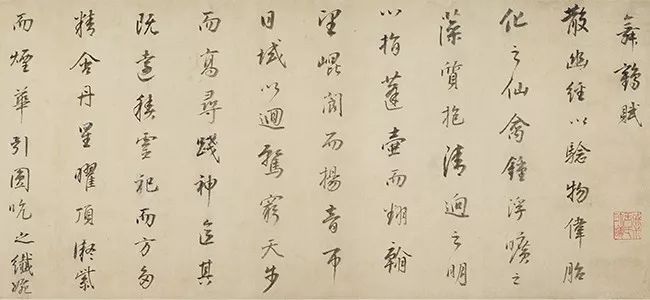 舞鶴賦
散幽經以驗物偉胎
化之仙禽鍾浮曠之
藻質抱清迥之明
心指蓬壺而翻翰
望崐閬而揚音帀
日域以迴騖窮天步
而高尋踐神區其
既遠積靈祀而方多
精含丹星曜頂凝紫
而煙華引圓吭之纖婉